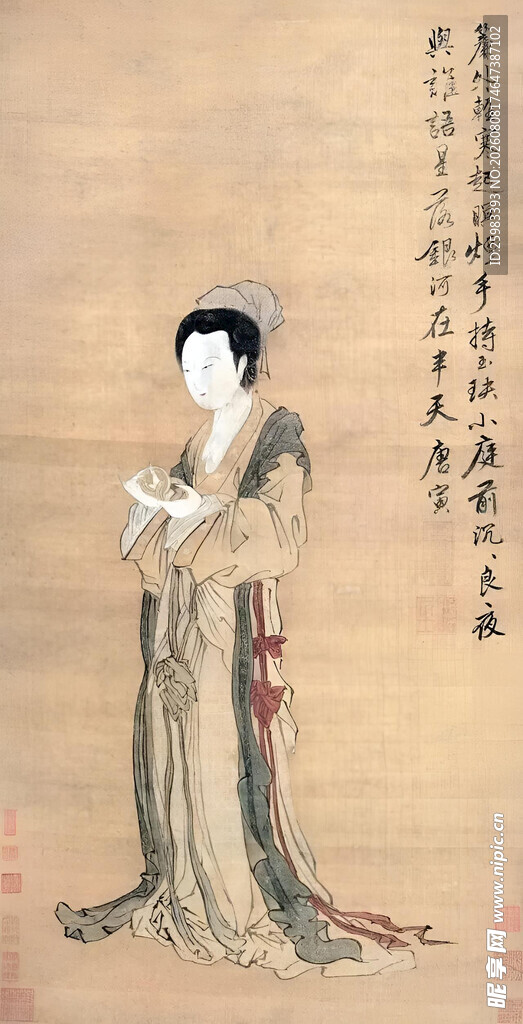 簾外輕寒起暝煙手持玉玦小庭前沉、良夜
與誰語星落銀河在半天唐寅
ID:25983393 NO:20260808174647387102
昵享网 www.nipic.cn